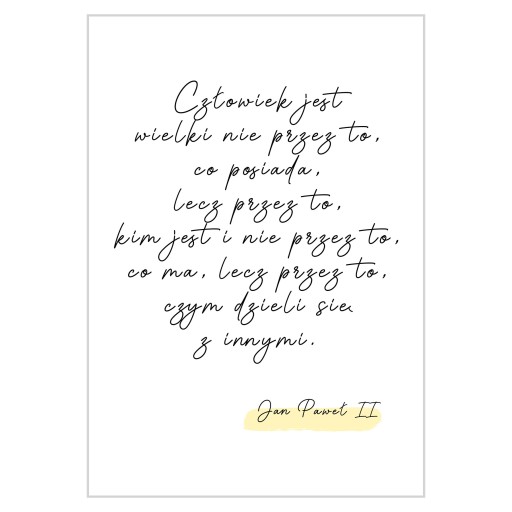 Człowiek jest
wielki nie przez to,
co posiada,
lecz przez to,
kim jest i nie przez to,
co ma, lecz przez to,
czym dzieli się
z innymi.
Jan Paweł II